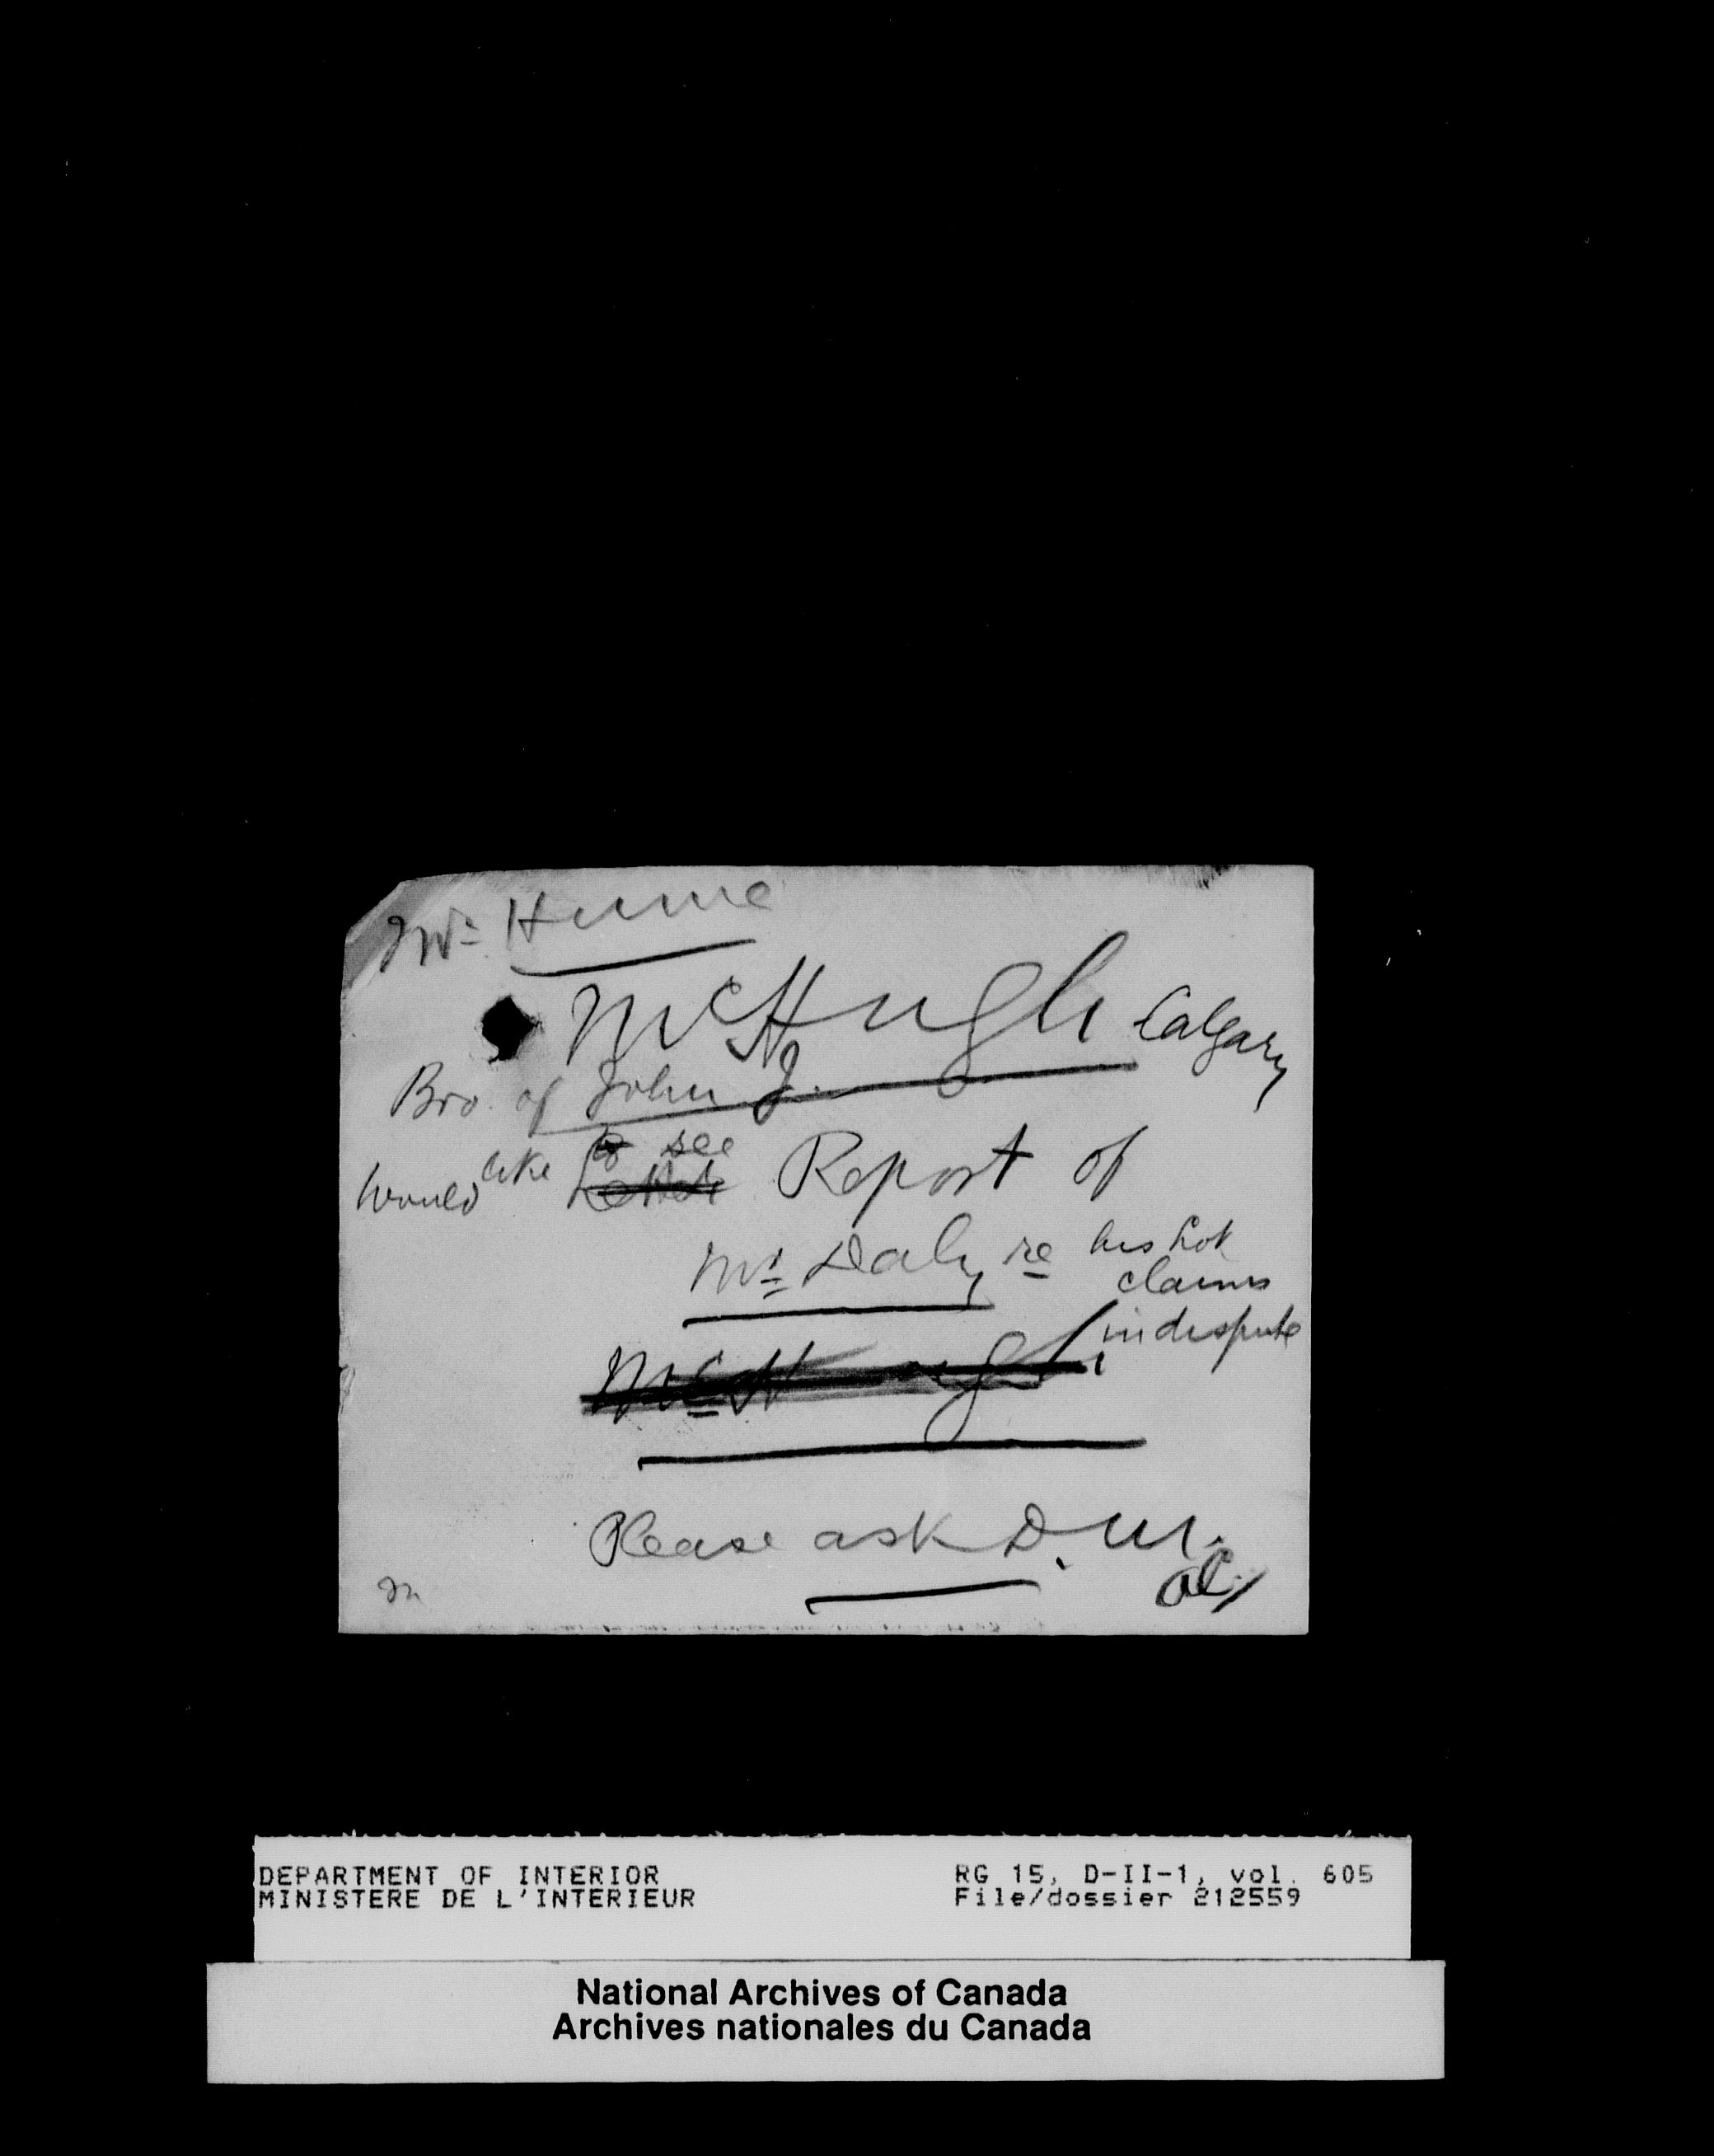 Mr Hume
McHugh Calgary
Bro. of John J.
to see
would like Letter Report of
Mr Daly re his Lot
claims
in dispute
McHugh
Please ask D.M.
DEPARTMENT OF INTERIOR
MINISTERE DE L'INTERIEUR
RG 15, D-II-1, vol. 605
File/dossier 212559
National Archives of Canada
Archives nationales du Canada